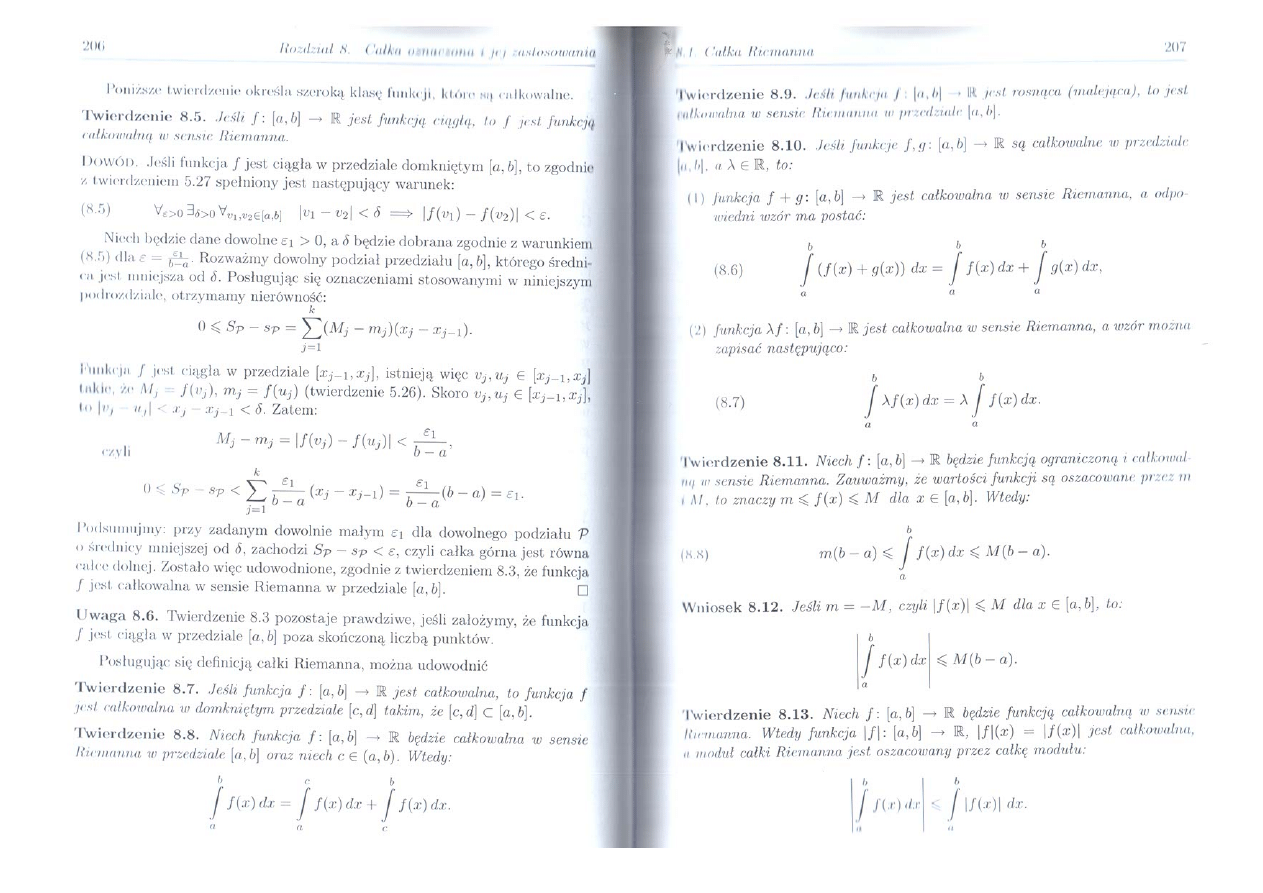 206 Rozdział 8. Całka oznaczona i jej zastosowania
Poniższe twierdzenie określa szeroką klasę funkcji, które są całkowalne.
Twierdzenie 8.5. Jeśli f : [a, b] → ℝ jest funkcją ciągłą, to f jest funkcją
całkowalną w sensie Riemanna.
DOWÓD. Jeśli funkcja f jest ciągła w przedziale domkniętym [a, b], to zgodnie
z twierdzeniem 5.27 spełniony jest następujący warunek:
(8.5) ∀ε>0 ∃δ>0 ∀v₁,v₂∈[a,b] |v₁ − v₂| < δ ⟹ |f(v₁) − f(v₂)| < ε.
Niech będzie dane dowolne ε₁ > 0, a δ będzie dobrana zgodnie z warunkiem
(8.5) dla ε = ε₁/(b−a). Rozważmy dowolny podział przedziału [a, b], którego średni-
ca jest mniejsza od δ. Posługując się oznaczeniami stosowanymi w niniejszym
podrozdziale, otrzymamy nierówność:
0 ⩽ S_P − s_P = ∑_{j=1}^{k} (M_j − m_j)(x_j − x_{j−1}).
Funkcja f jest ciągła w przedziale [x_{j−1}, x_j], istnieją więc v_j, u_j ∈ [x_{j−1}, x_j]
takie, że M_j = f(v_j), m_j = f(u_j) (twierdzenie 5.26). Skoro v_j, u_j ∈ [x_{j−1}, x_j],
to |v_j − u_j| < x_j − x_{j−1} < δ. Zatem:
M_j − m_j = |f(v_j) − f(u_j)| < ε₁/(b − a),
czyli
0 ⩽ S_P − s_P < ∑_{j=1}^{k} ε₁/(b − a) (x_j − x_{j−1}) = ε₁/(b − a) (b − a) = ε₁.
Podsumujmy: przy zadanym dowolnie małym ε₁ dla dowolnego podziału P
o średnicy mniejszej od δ, zachodzi S_P − s_P < ε, czyli całka górna jest równa
całce dolnej. Zostało więc udowodnione, zgodnie z twierdzeniem 8.3, że funkcja
f jest całkowalna w sensie Riemanna w przedziale [a, b]. □
Uwaga 8.6. Twierdzenie 8.3 pozostaje prawdziwe, jeśli założymy, że funkcja
f jest ciągła w przedziale [a, b] poza skończoną liczbą punktów.
Posługując się definicją całki Riemanna, można udowodnić
Twierdzenie 8.7. Jeśli funkcja f : [a, b] → ℝ jest całkowalna, to funkcja f
jest całkowalna w domkniętym przedziale [c, d] takim, że [c, d] ⊂ [a, b].
Twierdzenie 8.8. Niech funkcja f : [a, b] → ℝ będzie całkowalna w sensie
Riemanna w przedziale [a, b] oraz niech c ∈ (a, b). Wtedy:
∫_a^b f(x) dx = ∫_a^c f(x) dx + ∫_c^b f(x) dx.
8.1. Całka Riemanna 207
Twierdzenie 8.9. Jeśli funkcja f : [a, b] → ℝ jest rosnąca (malejąca), to jest
całkowalna w sensie Riemanna w przedziale [a, b].
Twierdzenie 8.10. Jeśli funkcje f, g : [a, b] → ℝ są całkowalne w przedziale
[a, b], a λ ∈ ℝ, to:
(1) funkcja f + g : [a, b] → ℝ jest całkowalna w sensie Riemanna, a odpo-
wiedni wzór ma postać:
(8.6) ∫_a^b (f(x) + g(x)) dx = ∫_a^b f(x) dx + ∫_a^b g(x) dx,
(2) funkcja λf : [a, b] → ℝ jest całkowalna w sensie Riemanna, a wzór można
zapisać następująco:
(8.7) ∫_a^b λf(x) dx = λ ∫_a^b f(x) dx.
Twierdzenie 8.11. Niech f : [a, b] → ℝ będzie funkcją ograniczoną i całkowal-
ną w sensie Riemanna. Zauważmy, że wartości funkcji są oszacowane przez m
i M, to znaczy m ⩽ f(x) ⩽ M dla x ∈ [a, b]. Wtedy:
(8.8) m(b − a) ⩽ ∫_a^b f(x) dx ⩽ M(b − a).
Wniosek 8.12. Jeśli m = −M, czyli |f(x)| ⩽ M dla x ∈ [a, b], to:
|∫_a^b f(x) dx| ⩽ M(b − a).
Twierdzenie 8.13. Niech f : [a, b] → ℝ będzie funkcją całkowalną w sensie
Riemanna. Wtedy funkcja |f| : [a, b] → ℝ, |f|(x) = |f(x)| jest całkowalna,
a moduł całki Riemanna jest oszacowany przez całkę modułu:
|∫_a^b f(x) dx| ⩽ ∫_a^b |f(x)| dx.